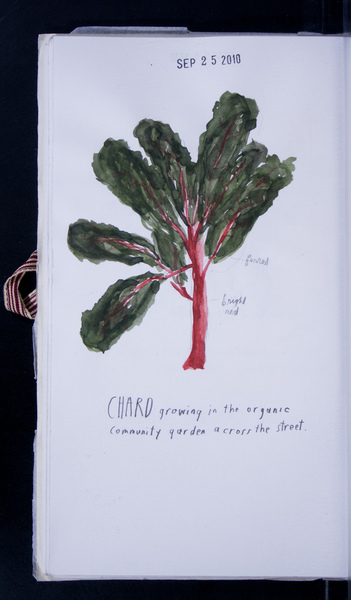 SEP 25 2010
bright
red
CHARD growing in the organic
community garden across the street.